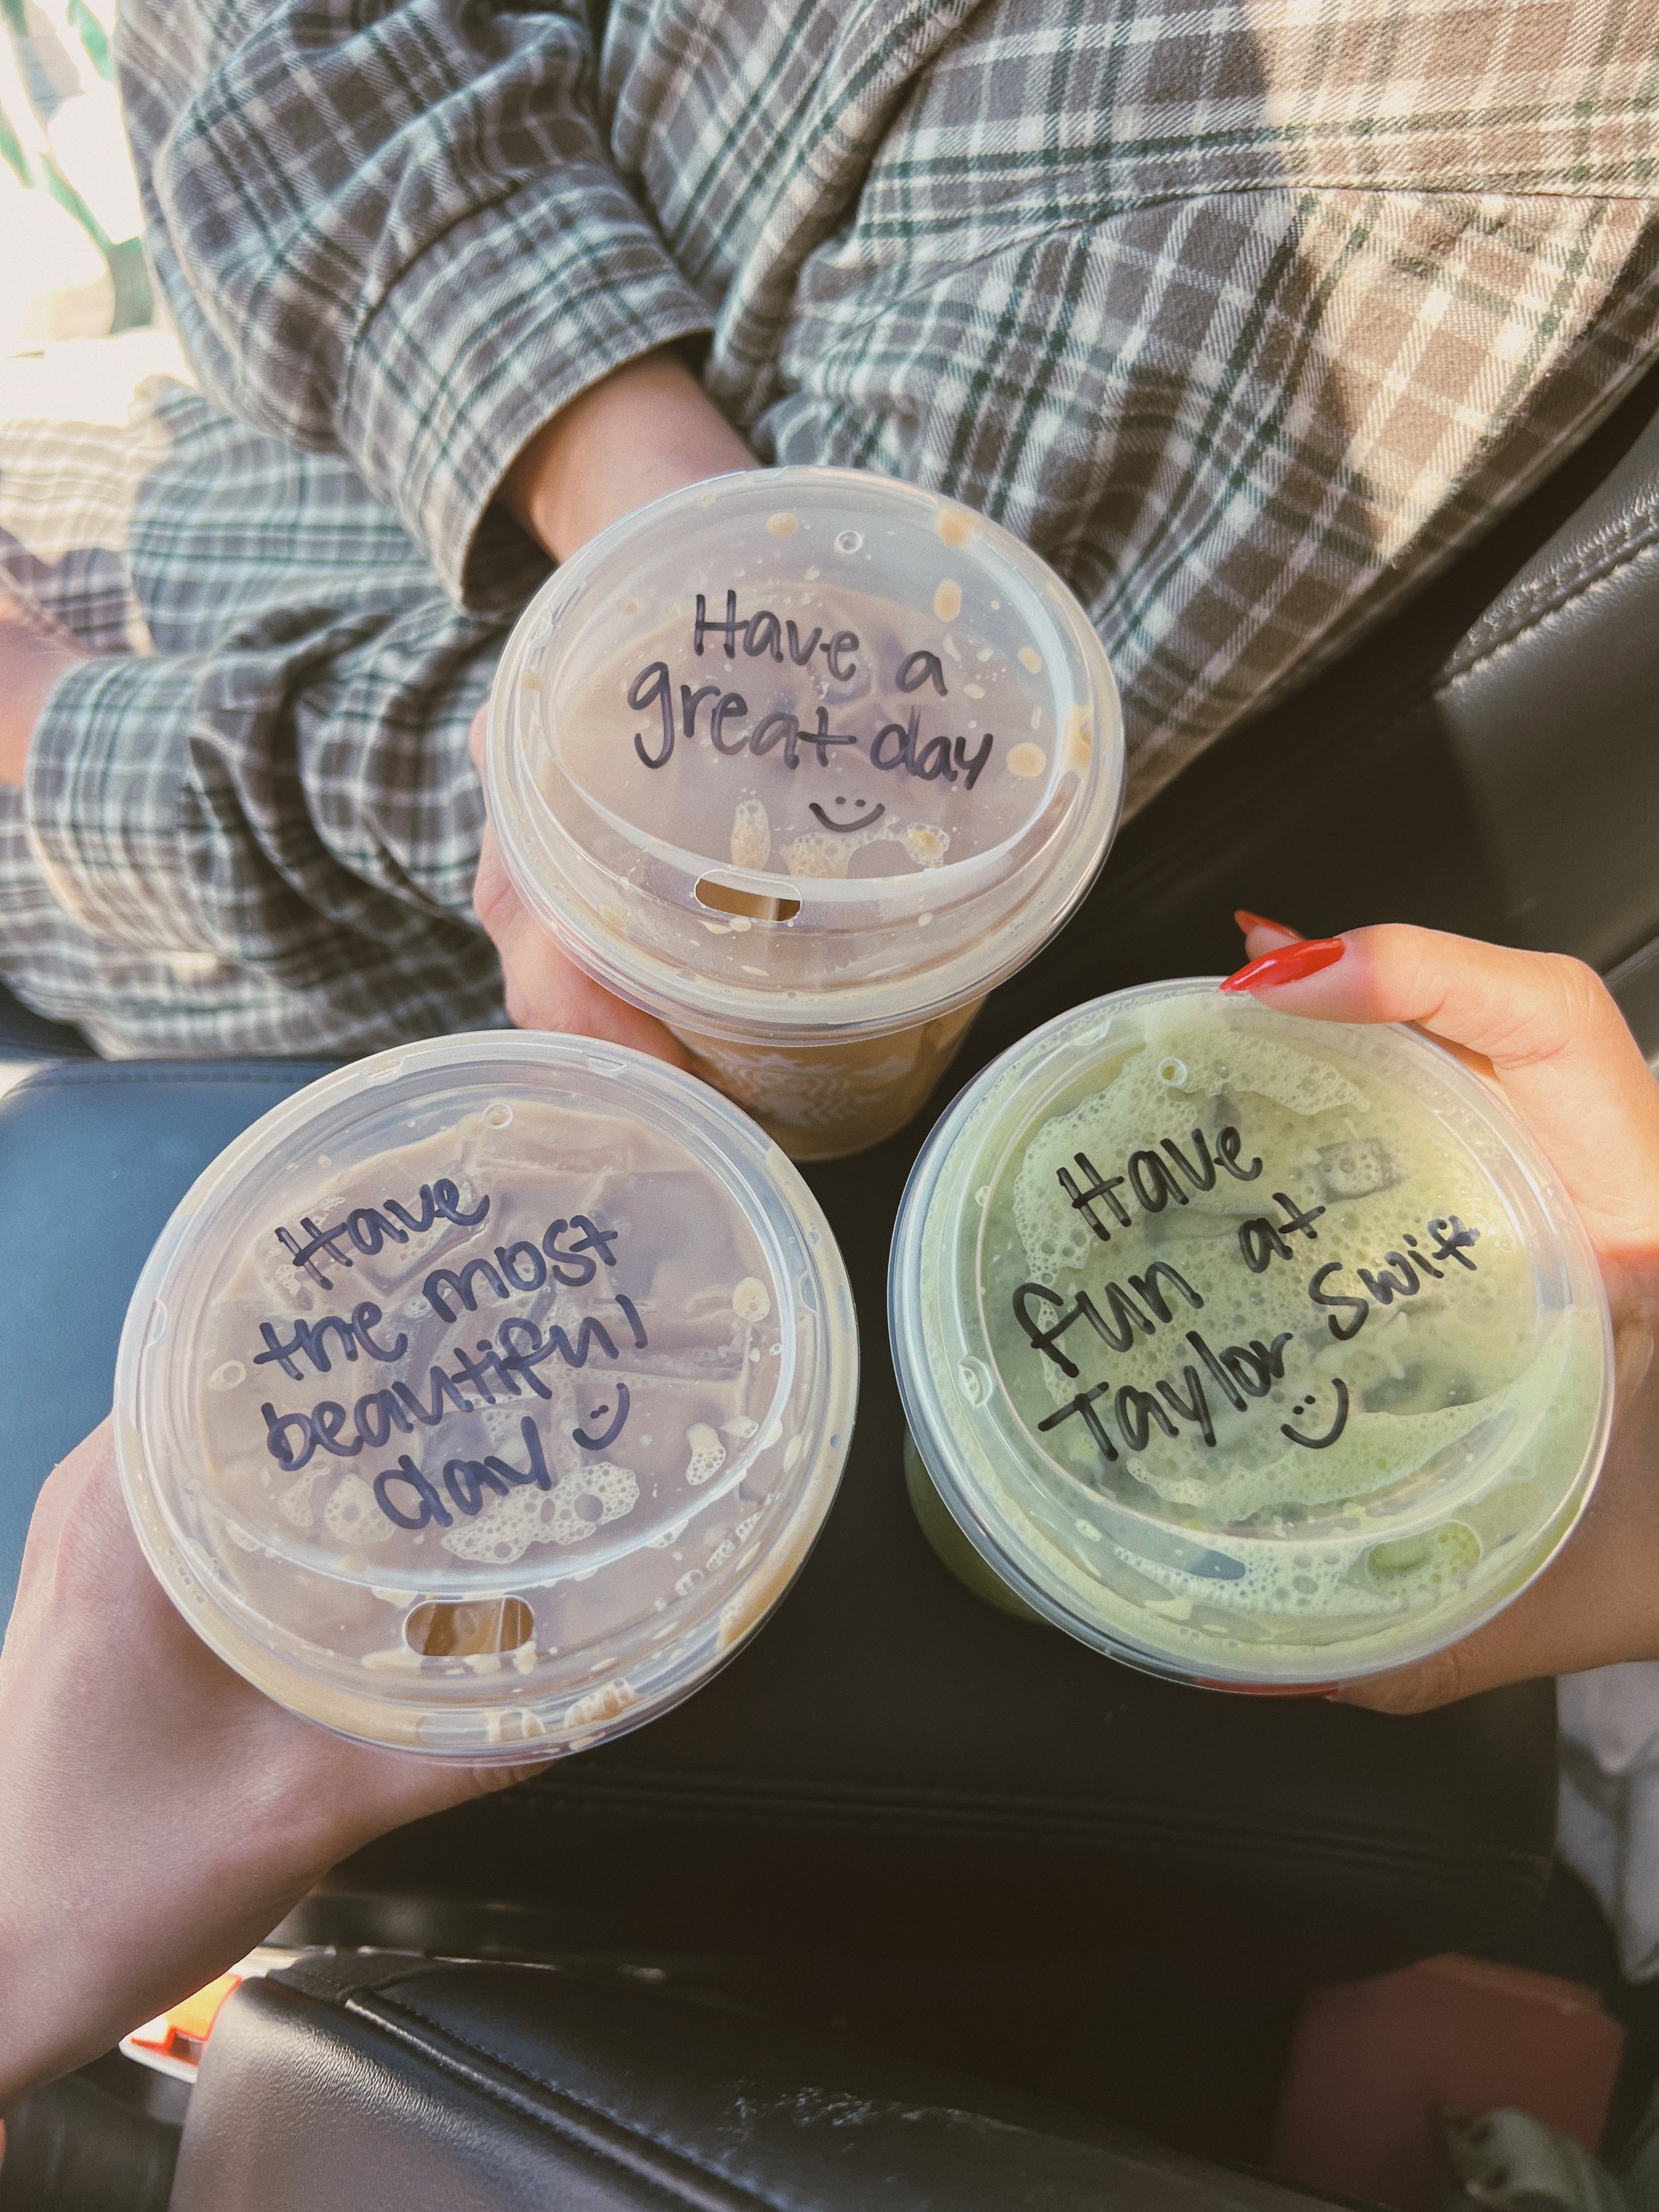 Have a
great day
Have
the most
beautiful
day
Have
fun at
Taylor Swift